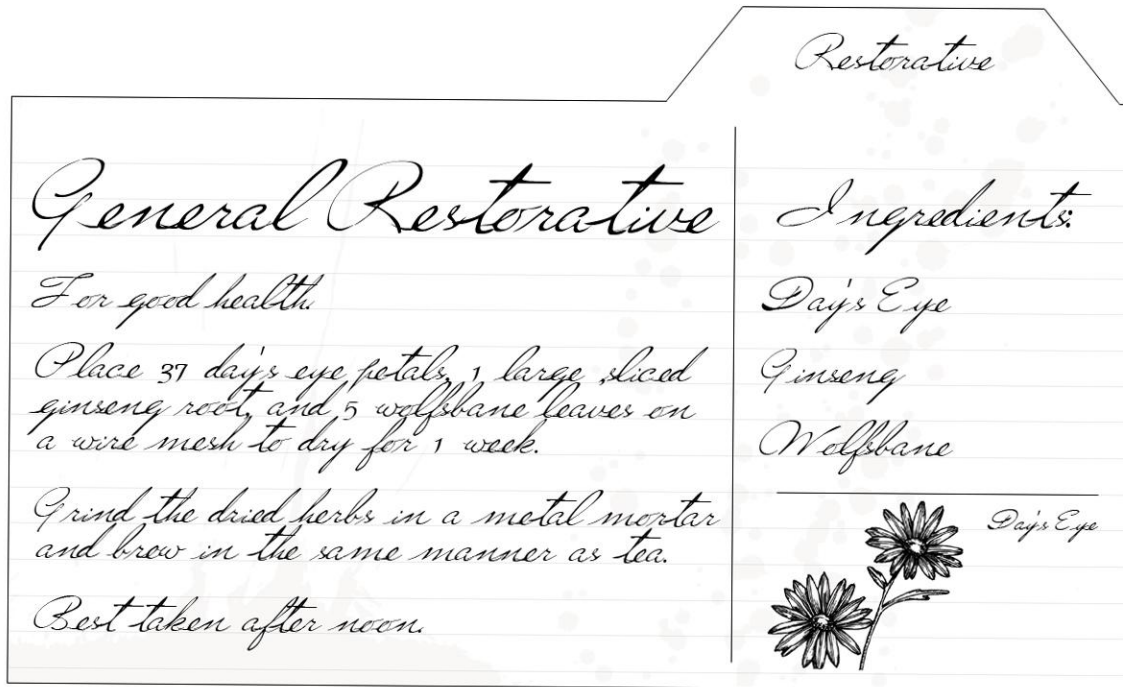 Restorative
General Restorative
For good health.
Place 37 day's eye petals, 1 large sliced
ginseng root, and 5 wolfsbane leaves on
a wire mesh to dry for 1 week.
Grind the dried herbs in a metal mortar
and brew in the same manner as tea.
Best taken after noon.
Ingredients:
Day's Eye
Ginseng
Wolfsbane
Day's Eye